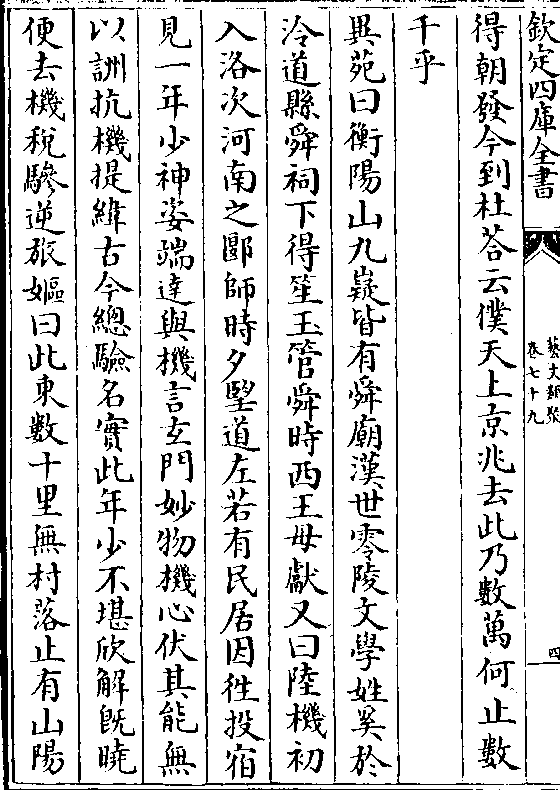 欽定四庫全書
藝文類聚
卷七十九
四
得朝發今到杜荅云僕天上京兆去此乃數萬何止數
千乎
異苑曰衡陽山九嶷皆有舜廟漢世零陵文學姓奚於
泠道縣舜祠下得笙玉管舜時西王母獻又曰陸機初
入洛次河南之郾師時夕塈道左若有民居因徃投宿
見一年少神姿端達與機言玄門妙物機心伏其能無
以詶抗機提緯古今總驗名實此年少不堪欣解旣曉
便去機稅驂逆旅嫗曰此東數十里無村落止有山陽